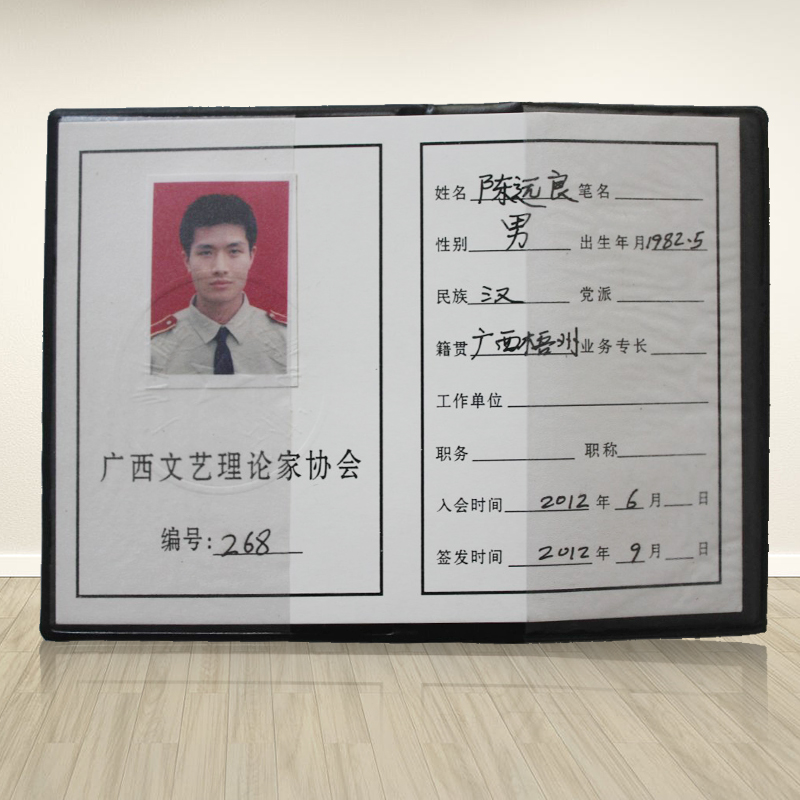 广西文艺理论家协会
编号：268
姓名 陈远良 笔名
性别 男 出生年月 1982.5
民族 汉 党派
籍贯 广西梧州 业务专长
工作单位
职务 职称
入会时间 2012 年 6 月 日
签发时间 2012 年 9 月 日